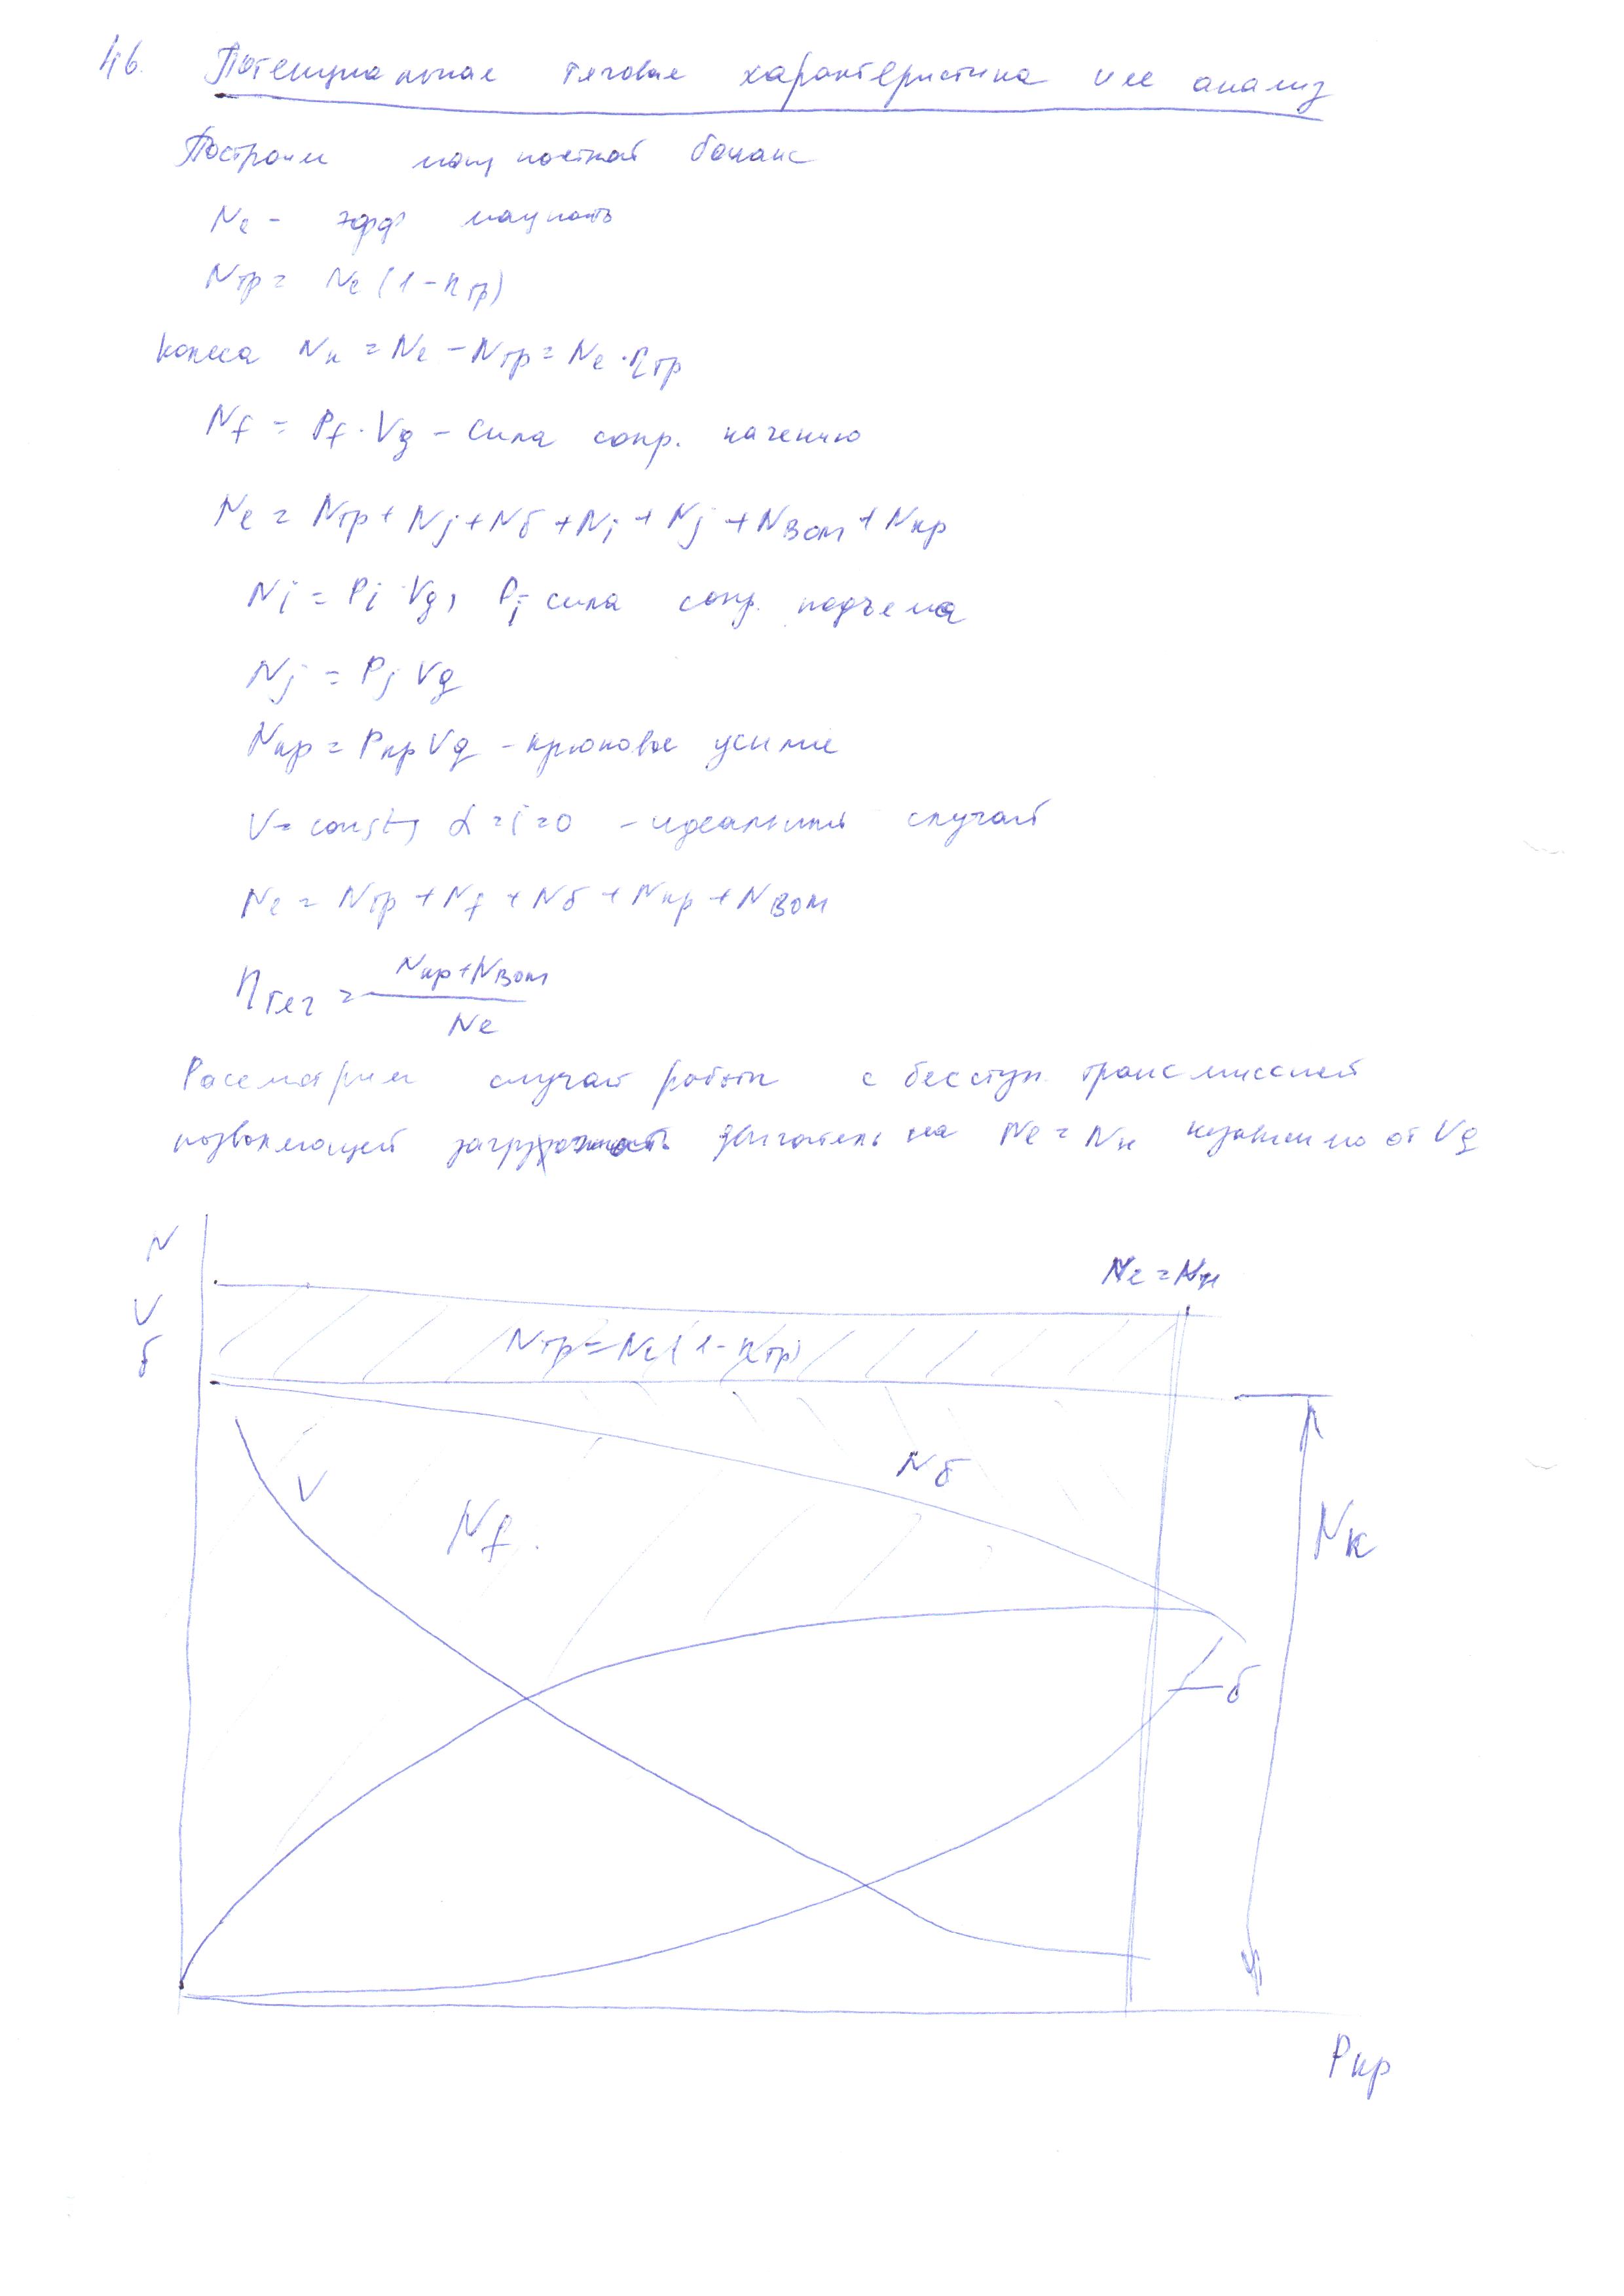 46. Потенциальная тяговая характеристика и ее анализ
Построим мощностной баланс
Ne - эфф мощность
Nтр = Ne (1 - ηтр)
колеса Nк = Ne - Nтр = Ne · ηтр
Nf = Pf · Vg - сила сопр. качению
Ne = Nтр + Nj + Nδ + Ni + Nj + NВОМ + Nкр
Ni = Pi Vg, Pi - сила сопр. подъема
Nj = Pj Vg
Nкр = Pкр Vg - крюковое усилие
V = const, α = i = 0 - идеальный случай
Ne = Nтр + Nf + Nδ + Nкр + NВОМ
ηтяг = Nкр + NВОМ / Ne
Рассмотрим случай работы с бесступ. трансмиссией
позволяющей загружать двигатель на Ne = Nн независимо от Vg
N
V
δ
Ne = Nн
Nтр = Ne (1 - ηтр)
Nδ
V
Nf
Nк
δ
Pкр